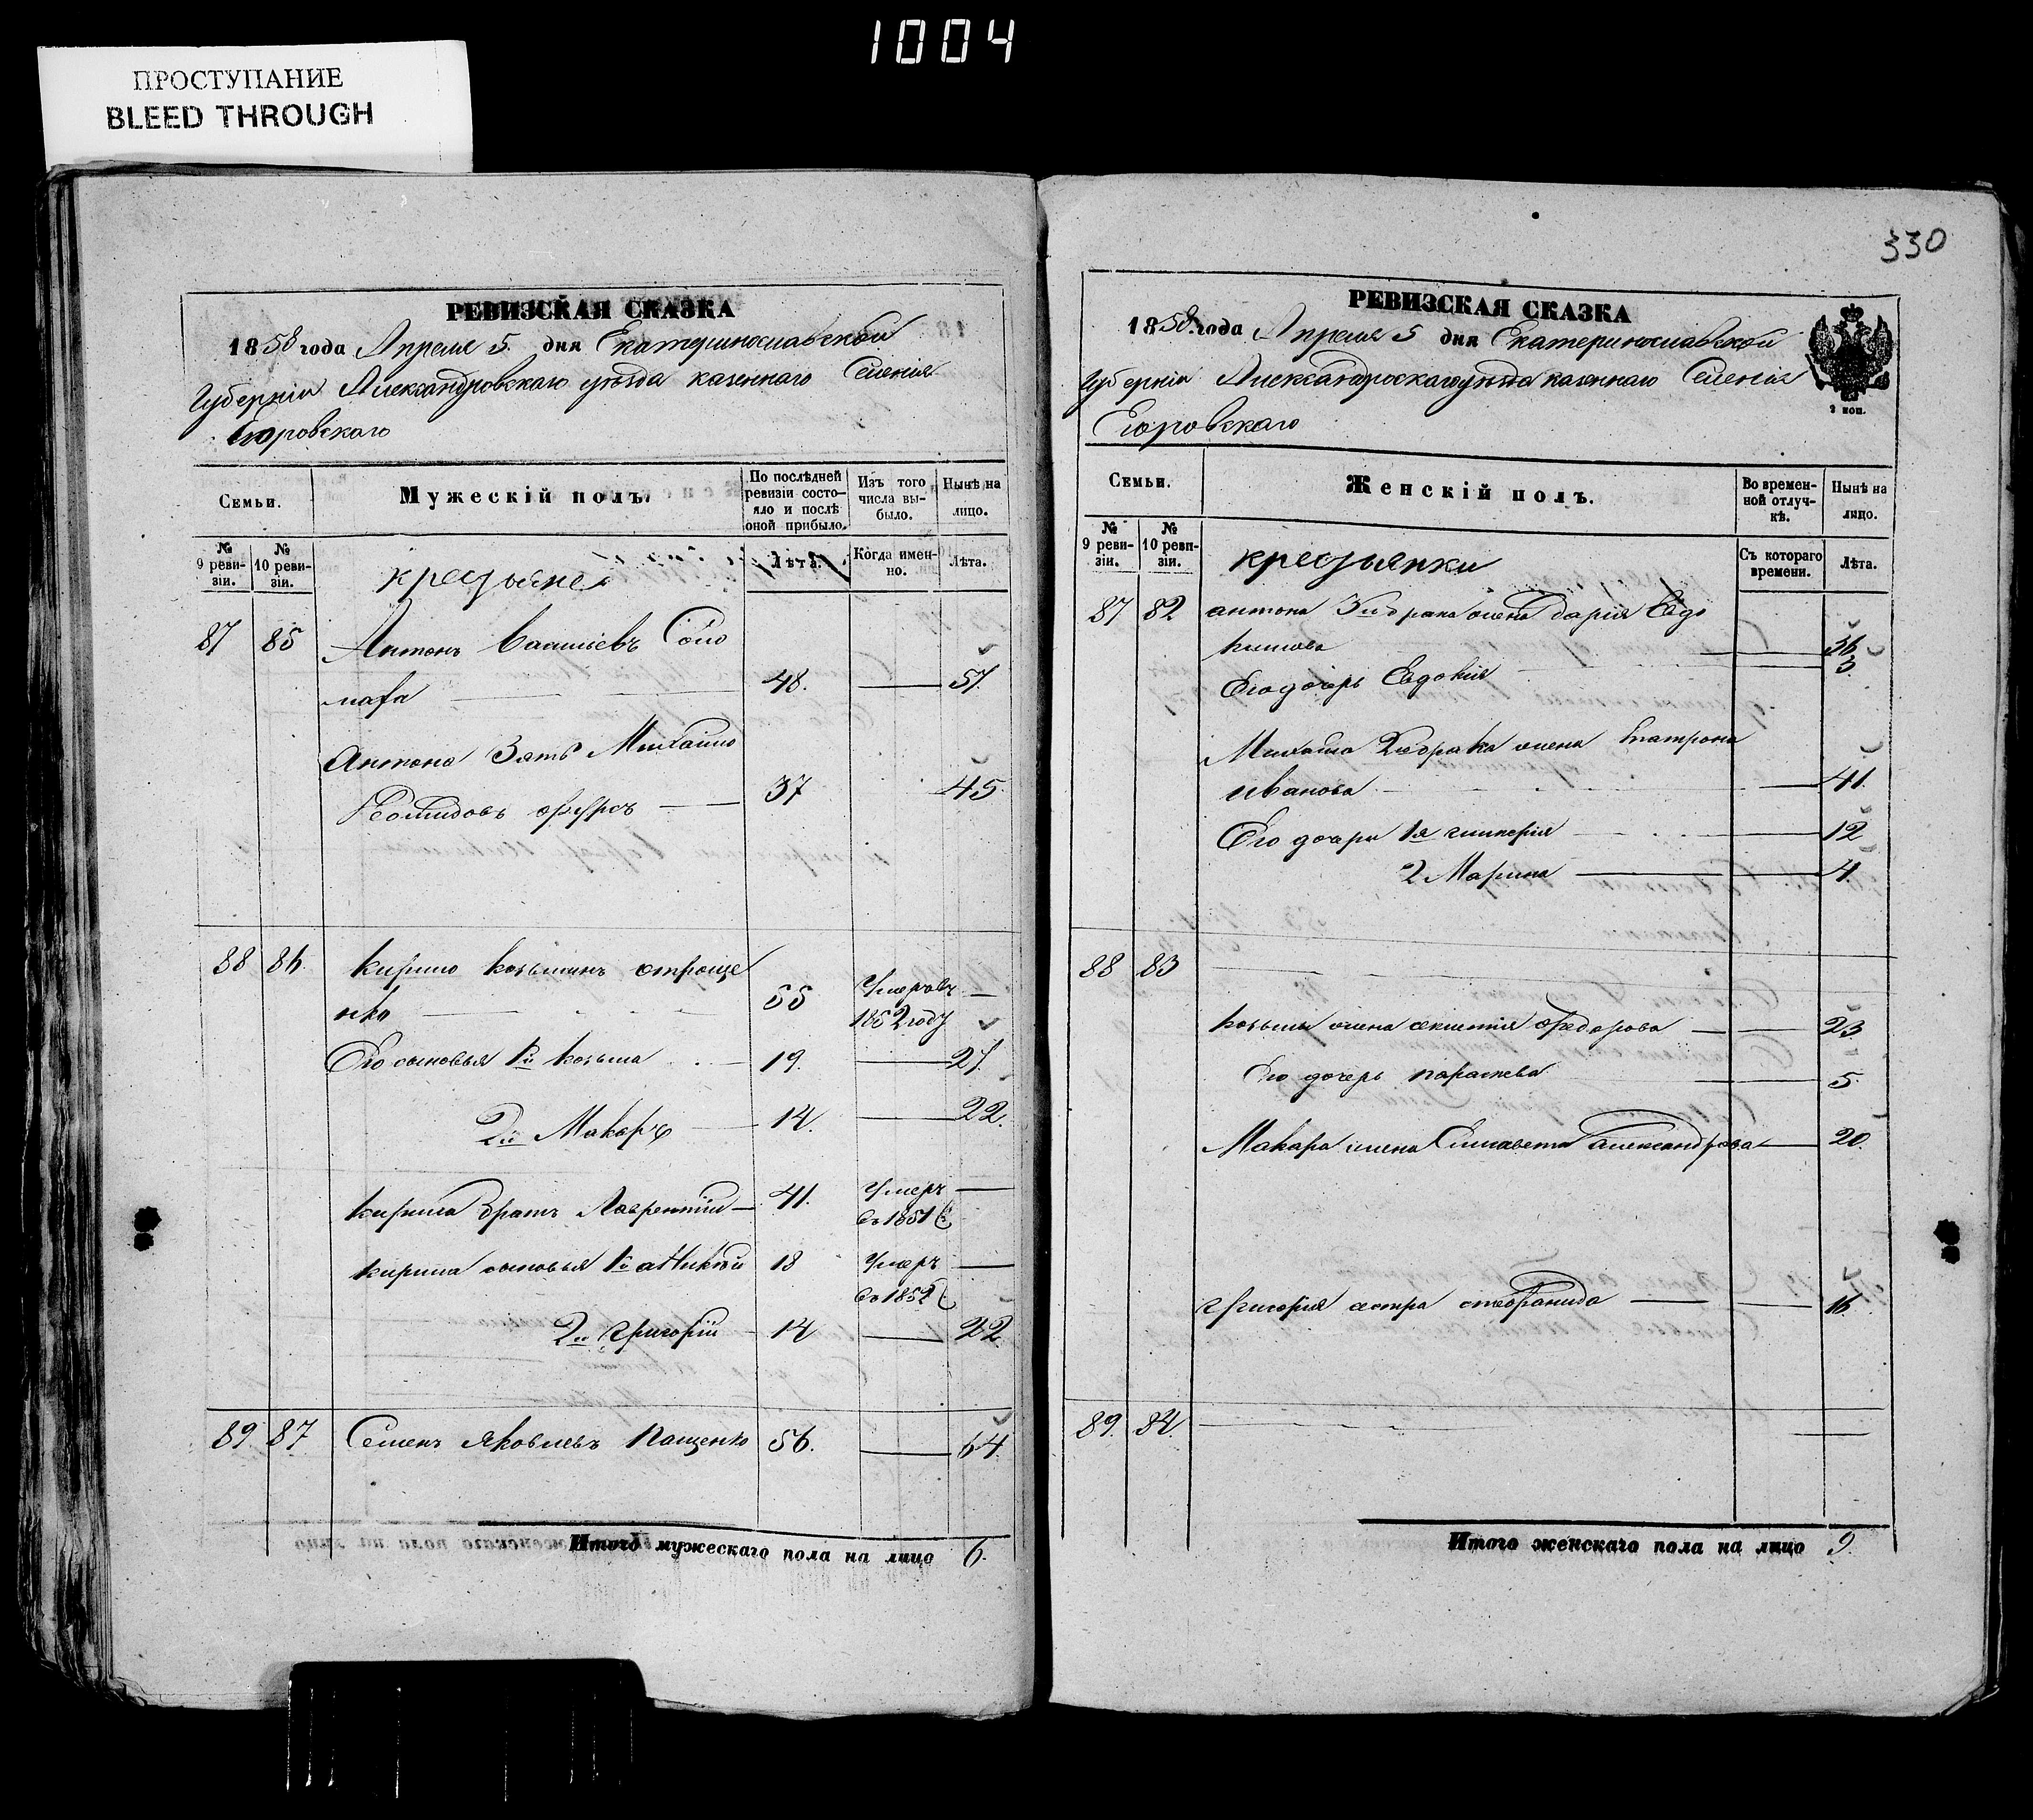 1004
ПРОСТУПАНИЕ
BLEED THROUGH
РЕВИЗСКАЯ СКАЗКА
1858 года Апреля 5. дня Екатеринославской
Губерніи Александровскаго уѣзда казеннаго Селенія
Егоровскаго
Семьи.
Мужескій полъ.
По послѣдней ревизіи состояло и послѣ оной прибыло.
Изъ того числа выбыло.
Нынѣ на лицо.
№ 9 ревизіи.
№ 10 ревизіи.
крестьяне
Лѣта.
Когда именно.
Лѣта.
87 85 Антонъ Васильевъ
48. 57.
Антона Зять Михайло
37 45
88 86. Кирило Козьминъ строще
нко 55 Умеръ въ
1852 году
Его сыновья 1й Козьма 19. 27.
2й Макаръ 14. 22.
Кирила братъ Лаврентій 41. Умеръ
въ 1851
Кирила сыновья 1й 18 Умеръ
въ 1852
2й Григорій 14 22
89 87 Семенъ Яковлевъ Пащенко 56. 64.
Итого мужескаго пола на лицо 6.
330
РЕВИЗСКАЯ СКАЗКА
1858 года Апреля 5 дня Екатеринославской
Губерніи Александроскаго уезда казеннаго Селенія
Егоровскаго
2 коп.
Семьи.
Женскій полъ.
Во временной отлучкѣ.
Нынѣ на лицо.
№ 9 ревизіи.
№ 10 ревизіи.
крестьянки
Съ котораго времени.
Лѣта.
87 82 антона жена Дарія Евдо
кимова 36
Его дочерь Евдокія 3.
Михайла жена
Иванова 41.
Его дочери 1я 12
2 Марина 4.
88 83
козьмы жена Федорова 23
Его дочерь параскева 5.
Макара жена Елисавета Александрова 20.
Григорія сестра стефанида 16.
89. 84.
Итого женскаго пола на лицо 9.